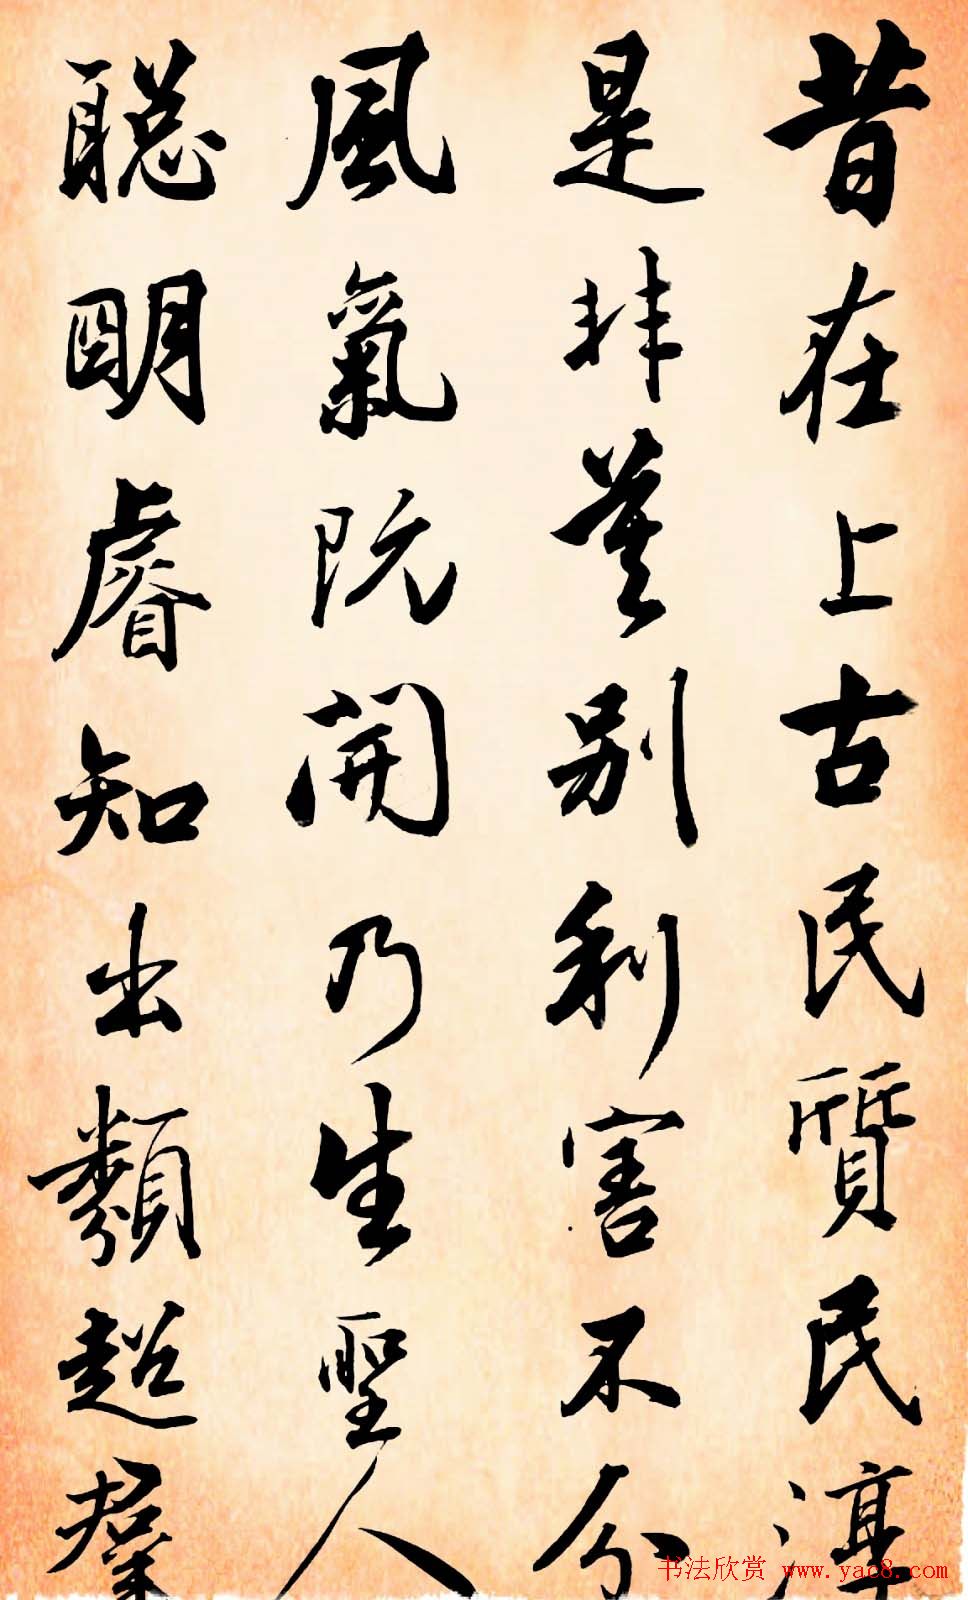 昔在上古民質民淳
是非莫别利害不分
風氣既開乃生聖人
聰明睿知出類超羣
书法欣赏 www.yac8.com